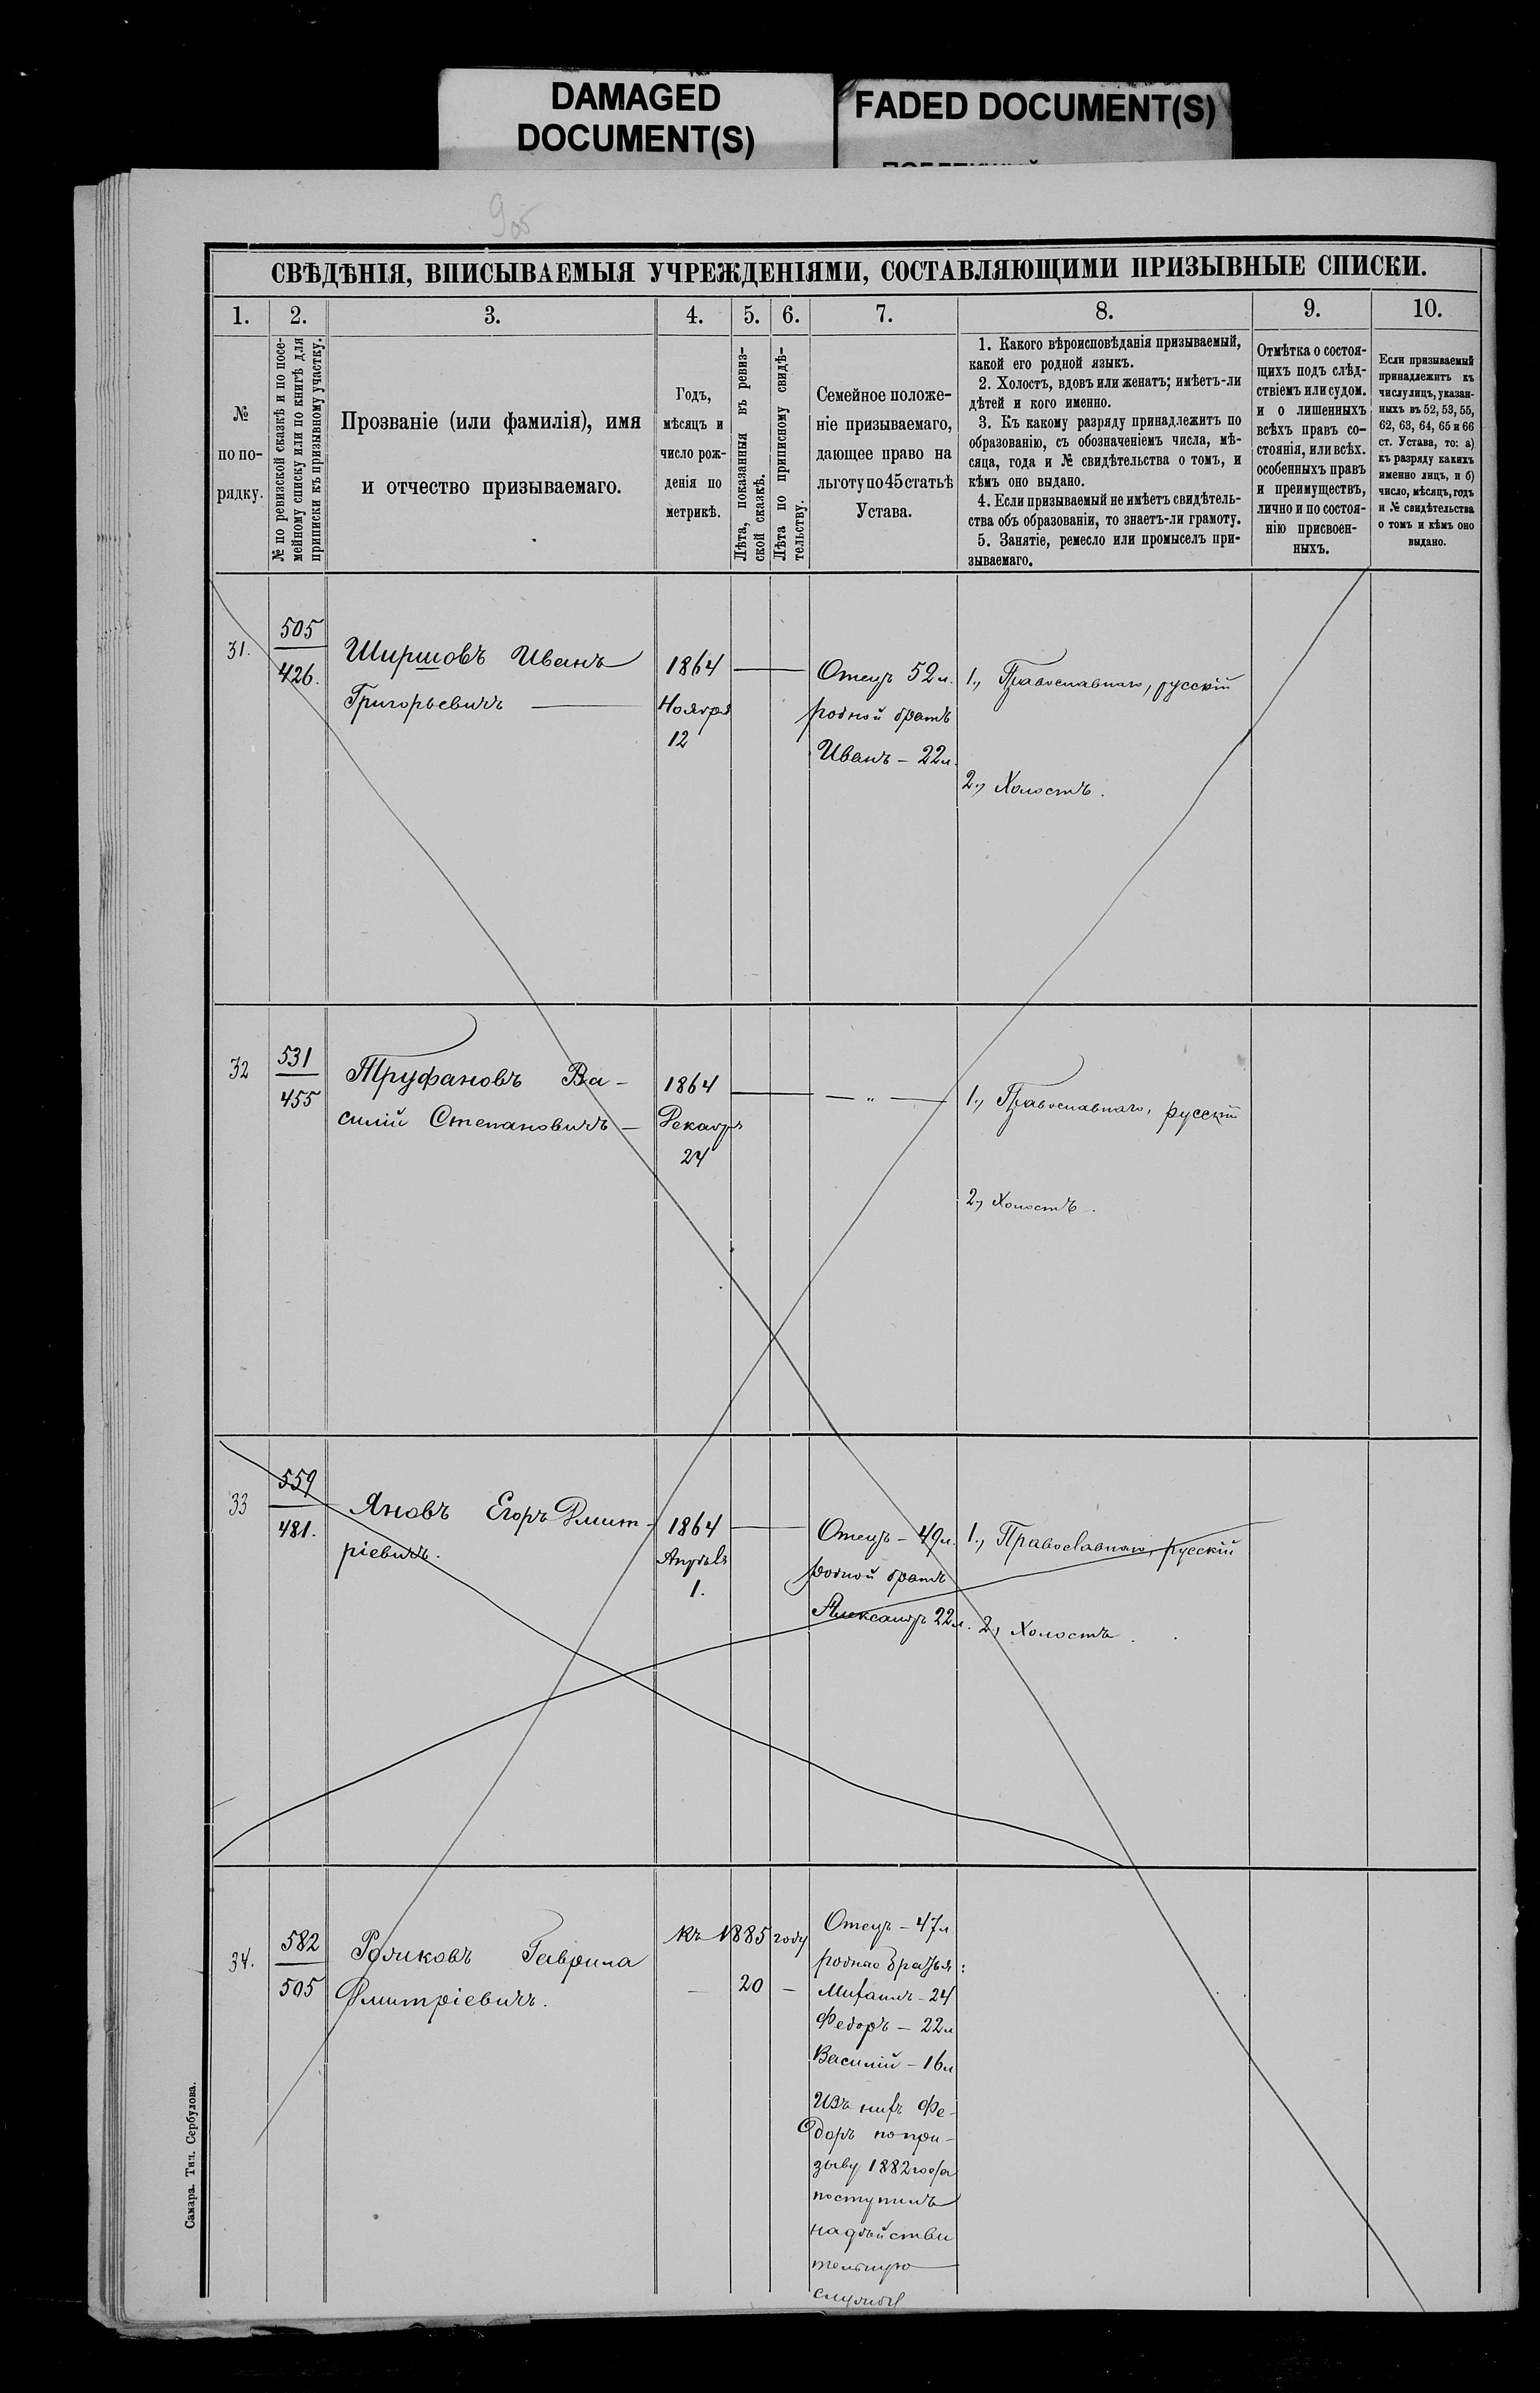 DAMAGED
DOCUMENT(S)
FADED DOCUMENT(S)
905
СВѢДѢНІЯ, ВПИСЫВАЕМЫЯ УЧРЕЖДЕНІЯМИ, СОСТАВЛЯЮЩИМИ ПРИЗЫВНЫЕ СПИСКИ.
1.
2.
3.
4.
5.
6.
7.
8.
9.
10.
№
по по-
рядку.
№ по ревизской сказкѣ и по посе-
мейному списку или по книгѣ для
приписки къ призывному участку.
Прозваніе (или фамилія), имя
и отчество призываемаго.
Годъ,
мѣсяцъ и
число рож-
денія по
метрикѣ.
Лѣта, показанныя въ ревиз-
ской сказкѣ.
Лѣта по приписному свидѣ-
тельству.
Семейное положе-
ніе призываемаго,
дающее право на
льготу по 45 статьѣ
Устава.
1. Какого вѣроисповѣданія призываемый,
какой его родной языкъ.
2. Холостъ, вдовъ или женатъ; имѣетъ-ли
дѣтей и кого именно.
3. Къ какому разряду принадлежитъ по
образованію, съ обозначеніемъ числа, мѣ-
сяца, года и № свидѣтельства о томъ, и
кѣмъ оно выдано.
4. Если призываемый не имѣетъ свидѣтель-
ства объ образованіи, то знаетъ-ли грамоту.
5. Занятіе, ремесло или промыселъ при-
зываемаго.
Отмѣтка о состоя-
щихъ подъ слѣд-
ствіемъ или судом.
и о лишенныхъ
всѣхъ правъ со-
стоянія, или всѣх.
особенныхъ правъ
и преимуществъ,
лично и по состоя-
нію присвоен-
ныхъ.
Если призываемый
принадлежитъ къ
числу лицъ, указан-
ныхъ въ 52, 53, 55,
62, 63, 64, 65 и 66
ст. Устава, то: а)
къ разряду какихъ
именно лицъ, и б)
число, мѣсяцъ, годъ
и № свидѣтельства
о томъ и кѣмъ оно
выдано.
31.
505
426.
Ширшовъ Иванъ
Григорьевичъ
1864
Ноября
12
Отецъ 52 л.
родной братъ
Иванъ – 22 л.
1., Православнаго, русскій
2., Холостъ.
32
531
455
Труфановъ Ва-
силій Степановичъ –
1864
Декабр.
24
— " —
1., Православнаго, русскій
2., Холостъ.
33
559
481.
Яновъ Егоръ Дмит-
ріевичъ.
1864
Апрѣля
1.
Отецъ – 49 л.
родной братъ
Александръ 22 л.
1., Православнаго, русскій
2., Холостъ.
34.
582
505
Гаврила
Дмитріевичъ.
къ 1885 году
– 20 –
Отецъ – 47 л
родные братья:
Михаилъ – 24
Федоръ – 22 л
Василій – 16 л
Изъ нихъ Фе-
доръ по при-
зыву 1882 года
поступилъ
на дѣйстви
тельную
службу
Самара. Тип. Сербулова.